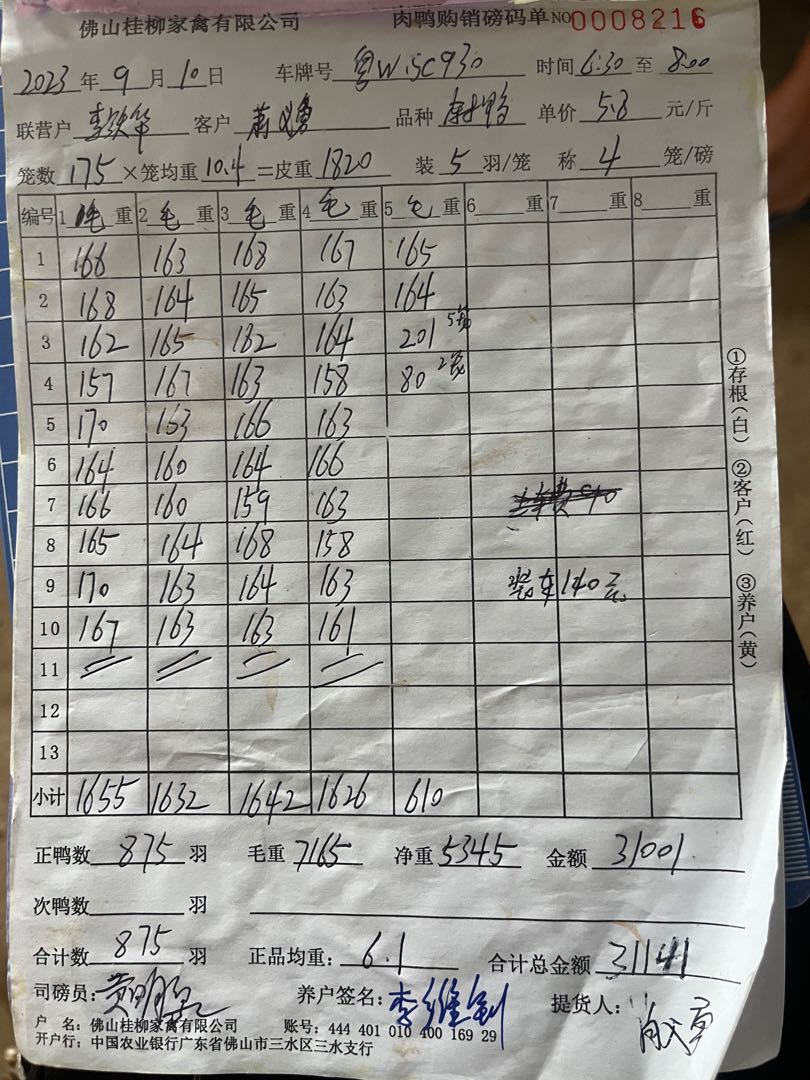 佛山桂柳家禽有限公司 肉鸭购销磅码单 NO 0008216
2023 年 9 月 10 日 车牌号 粤W.5C930 时间 6:30 至 8:00
联营户 客户 萧 品种 鸭 单价 5.8 元/斤
笼数 175 ×笼均重 10.4 =皮重 1820 装 5 羽/笼 称 4 笼/磅
编号 1 毛 重 2 毛 重 3 毛 重 4 毛 重 5 毛 重 6 重 7 重 8 重
1 166 163 168 167 165
2 168 164 165 163 164
3 162 165 162 164 201 5笼
4 157 167 163 158 80 2笼
5 170 163 166 163
6 164 160 164 166
7 166 160 159 163
8 165 164 168 158
9 170 163 164 163 装车140元
10 167 163 163 161
11
12
13
小计 1655 1632 1642 1626 610
①存根(白) ②客户(红) ③养户(黄)
正鸭数 875 羽 毛重 7165 净重 5345 金额 31001
次鸭数 羽
合计数 875 羽 正品均重: 6.1 合计总金额 31141
司磅员: 黄明 养户签名: 李维钊 提货人:
户 名: 佛山桂柳家禽有限公司 账号: 444 401 010 400 169 29
开户行: 中国农业银行广东省佛山市三水区三水支行